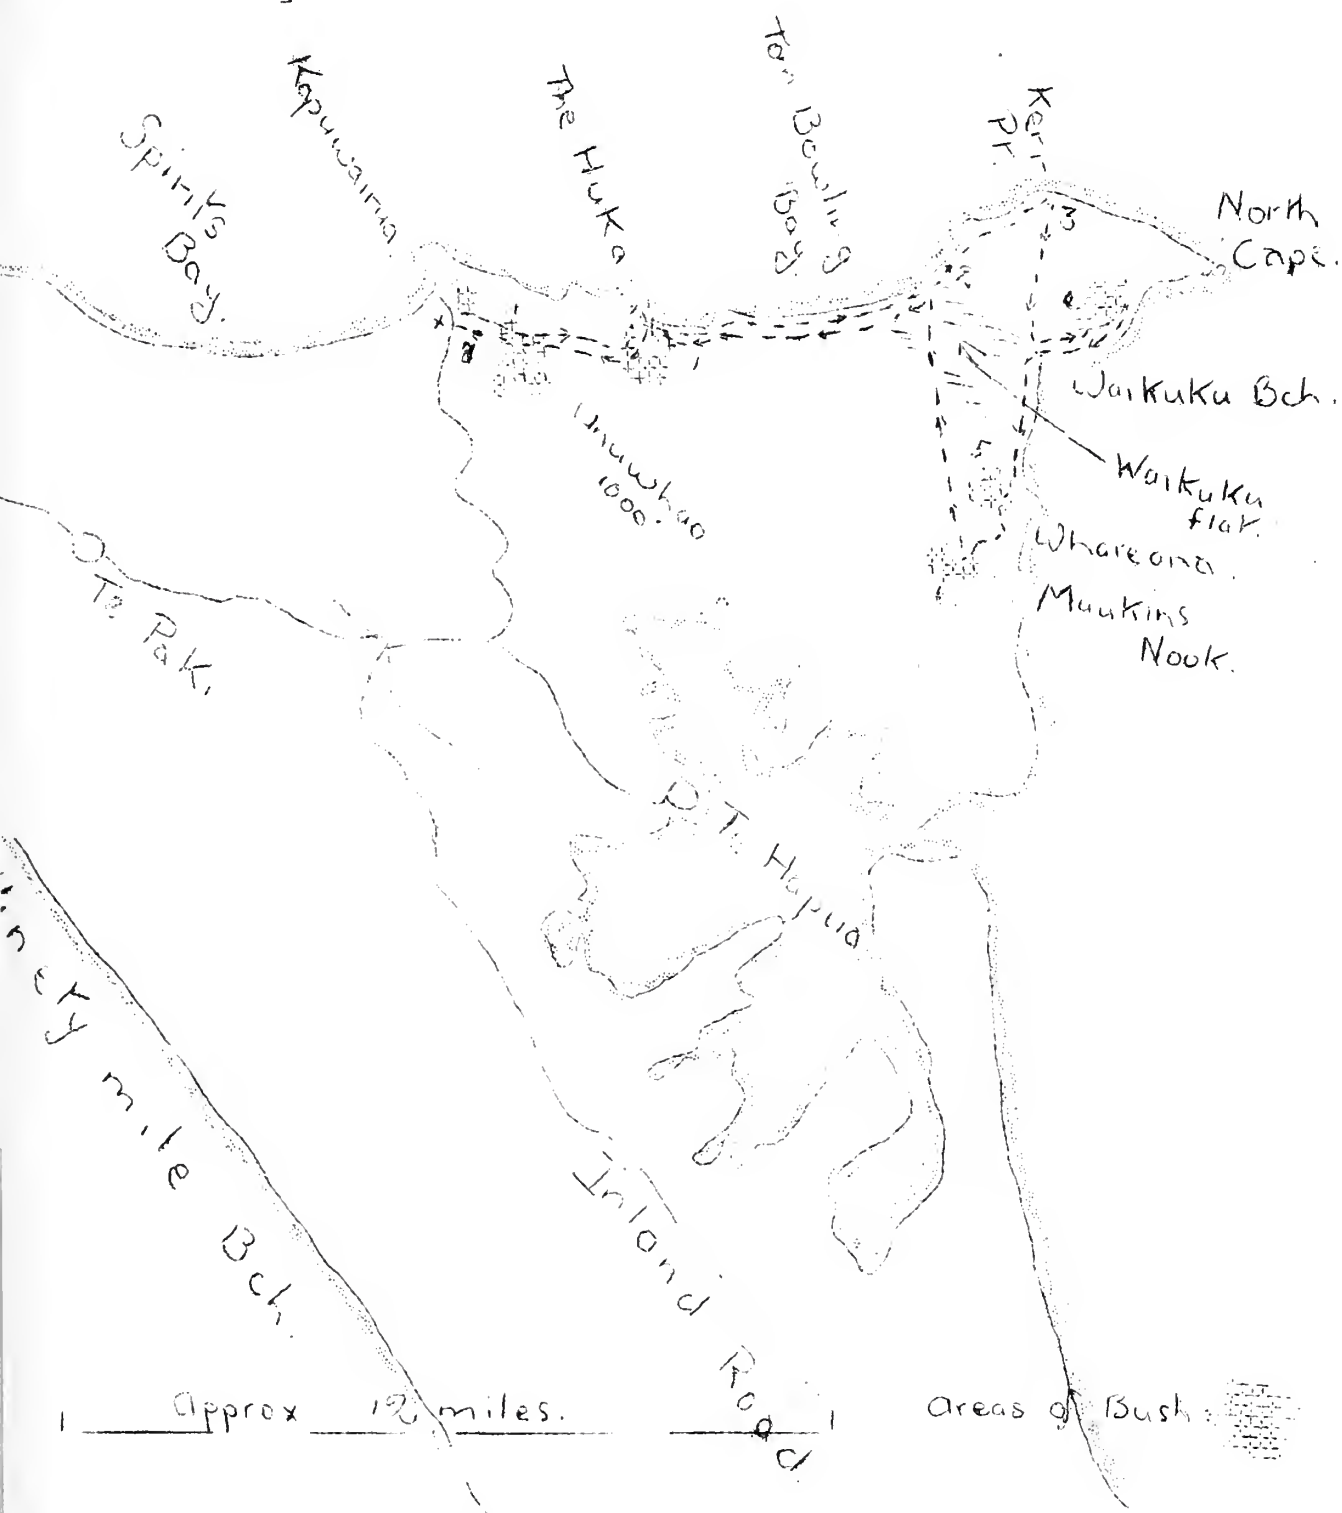 Spirit's
Bay.
Kapuwairua
The Huka
Tom Bowling
Bay
Kerr
Pt.
North
Cape.
3
Waikuku Bch.
Waikuku
flat.
Whareana.
Maukins
Nook.
Unuwhao
1000.
x
1
5
Te Pak.
Te Hapua
Ninety mile Bch.
Inland Road
Approx 12 miles.
Areas of Bush: